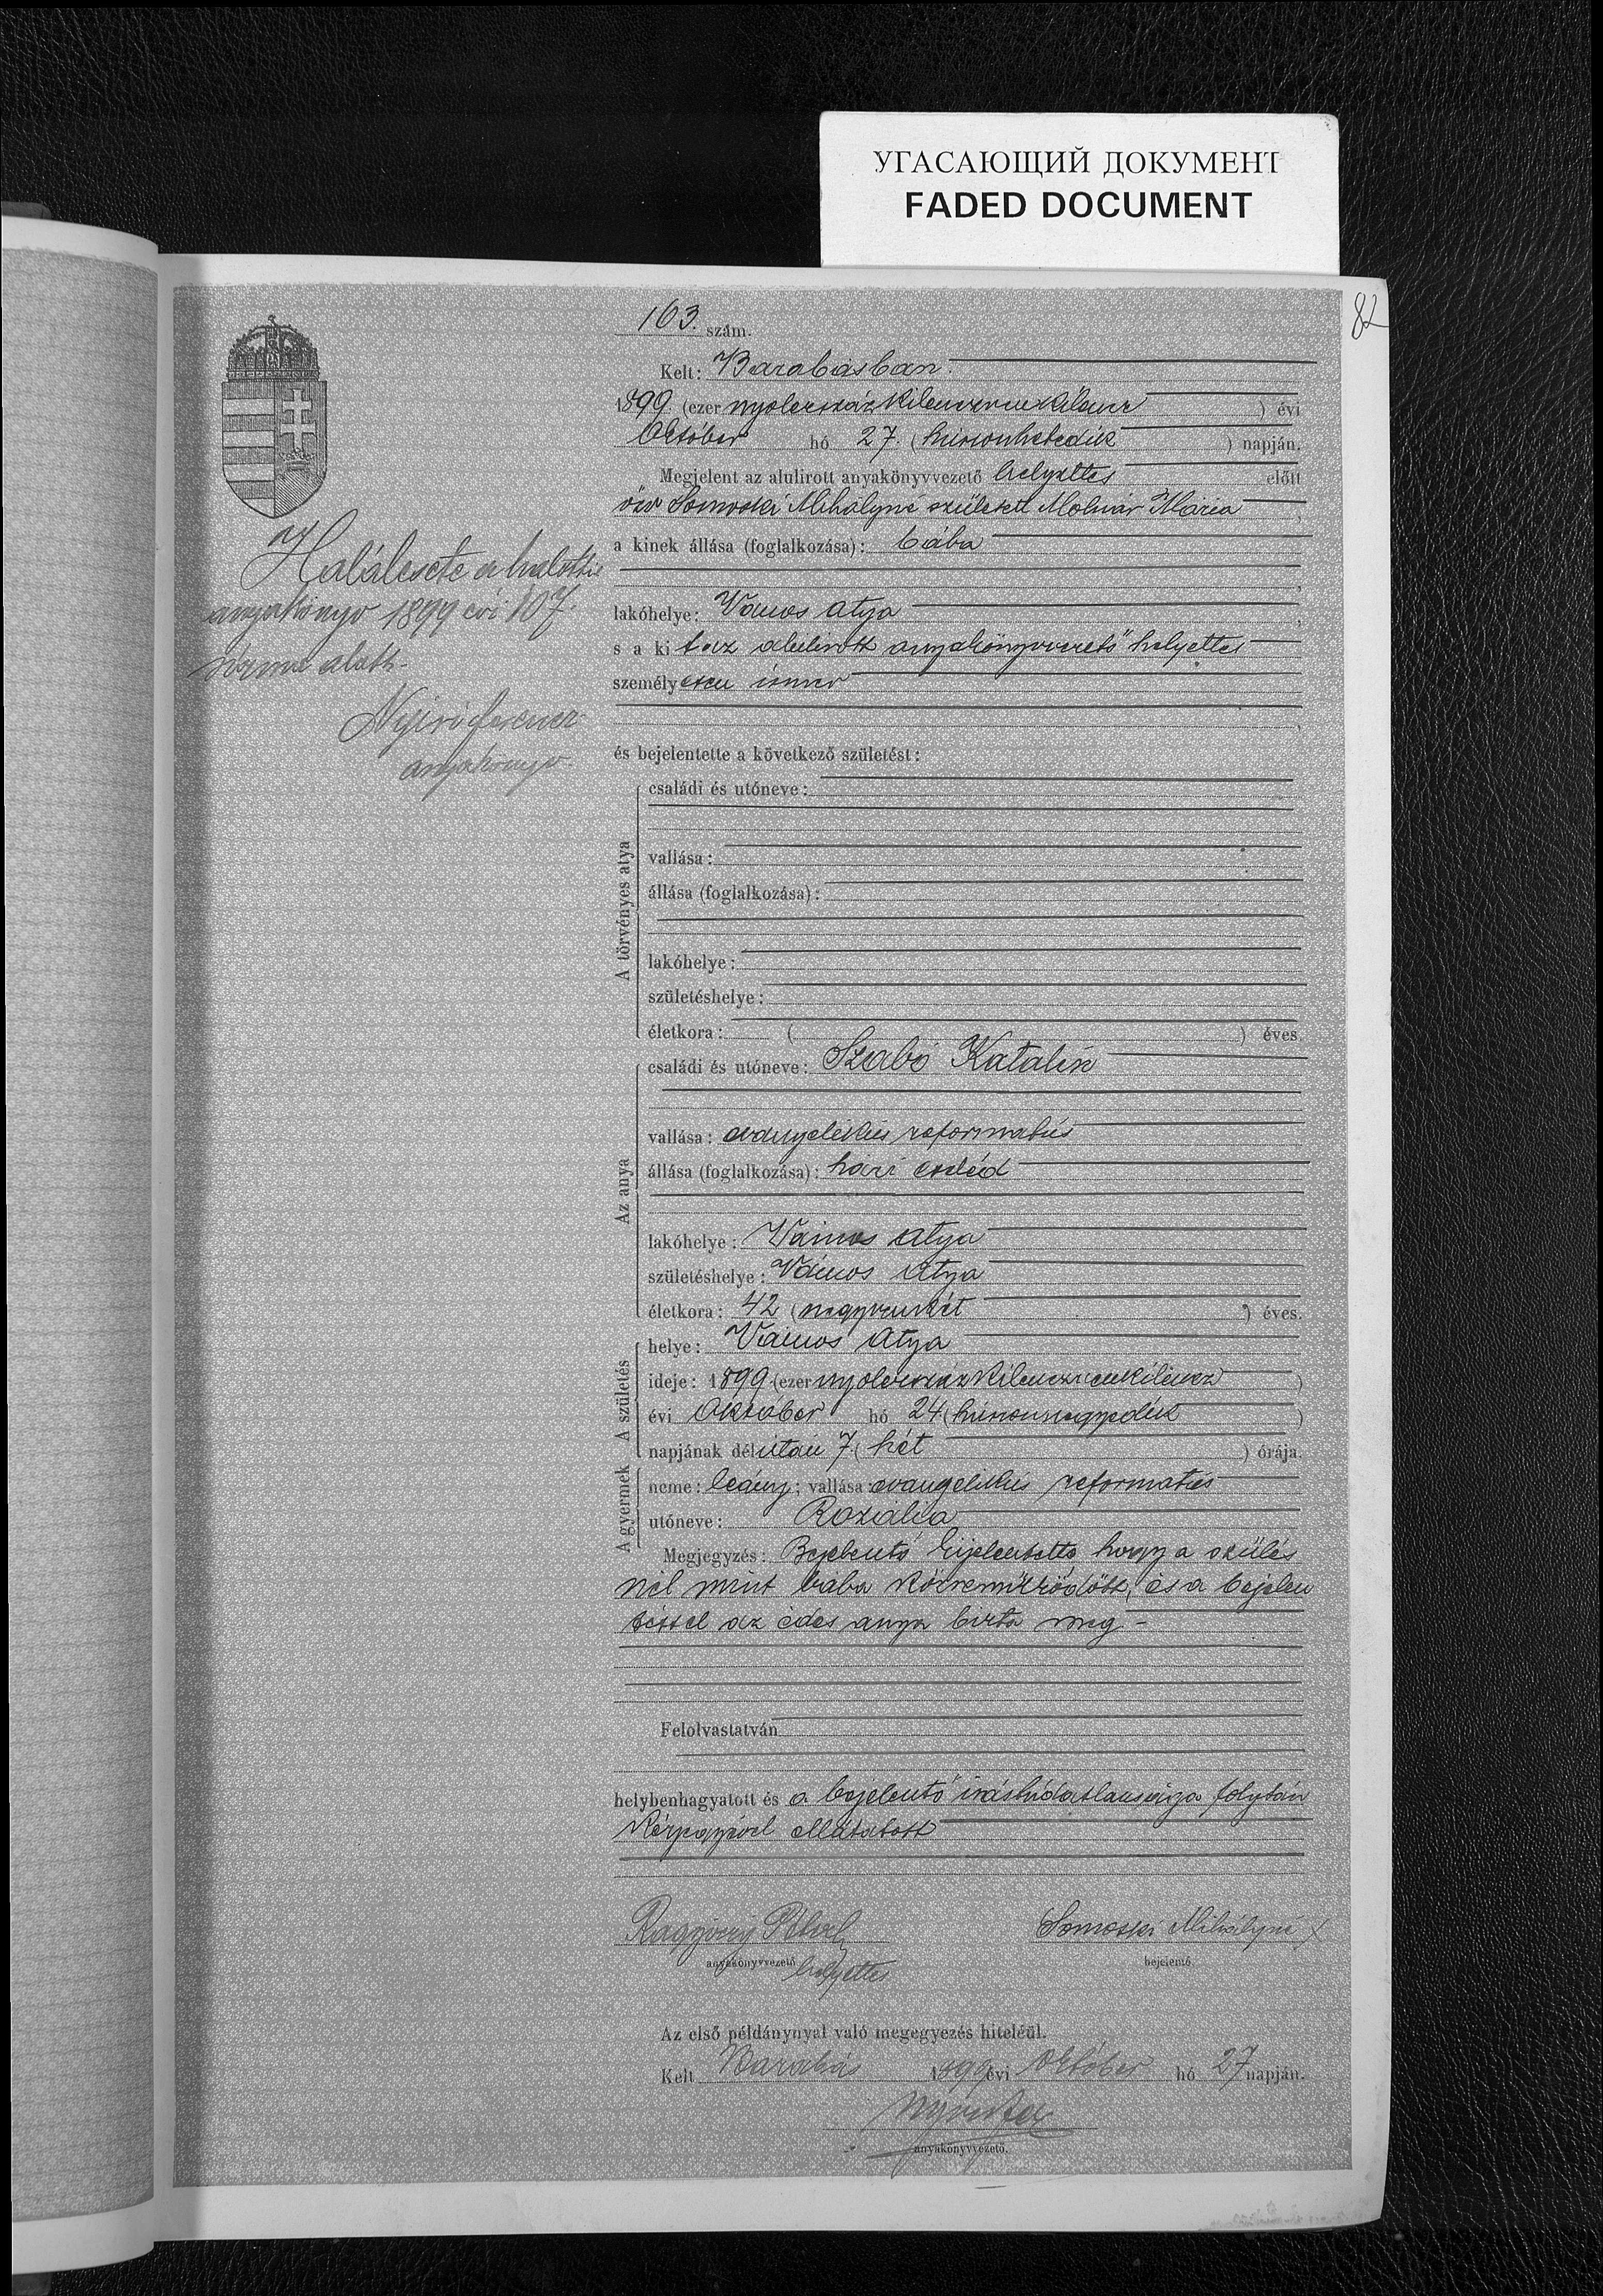 УГАСАЮЩИЙ ДОКУМЕНТ
FADED DOCUMENT
82
163. szám.
Kelt: Barabásban
1899. (ezer nyolczszázkilenczvenkilencz) évi
Október hó 27. (huszonhetedik) napján.
Megjelent az alulirott anyakönyvvezető helyettes előtt
özv Somoski Mihályné született Molnár Mária,
a kinek állása (foglalkozása): bába
lakóhelye: Vámos Atya,
s a kit az alulirott anyakönyvvezető helyettes
személyesen ismer,
és bejelentette a következő születést:
Halálesete a halotti
anyakönyv 1899 évi 107.
szám alatt.
Nyirő Ferencz
anyakönyv.
A törvényes atya
családi és utóneve:
vallása:
állása (foglalkozása):
lakóhelye:
születéshelye:
életkora: ( ) éves.
Az anya
családi és utóneve: Szabó Katalin
vallása: evangelikus reformatus
állása (foglalkozása): házi cseléd
lakóhelye: Vámos Atya
születéshelye: Vámos Atya
életkora: 42 (negyvenkét) éves.
A születés
helye: Vámos Atya
ideje: 1899 (ezer nyolczszázkilenczvenkilencz)
évi Október hó 24 (huszonnegyedik)
napjának délután 7. (hét) órája.
A gyermek
neme: leány; vallása: evangelikus reformatus
utóneve: Rozália
Megjegyzés: Bejelentő kijelentette hogy a szülés
nél mint bába közreműködött, és a bejelen
téssel az édes anya bizta meg –
Felolvastatván
helybenhagyatott és a bejelentő irástudatlansága folytán
kézjegyével elláttatott
anyakönyvvezető helyettes
Somoski Mihályné x
bejelentő.
Az első példánynyal való megegyezés hiteléül.
Kelt Barabás 1899 évi Október hó 27 napján.
anyakönyvvezető.